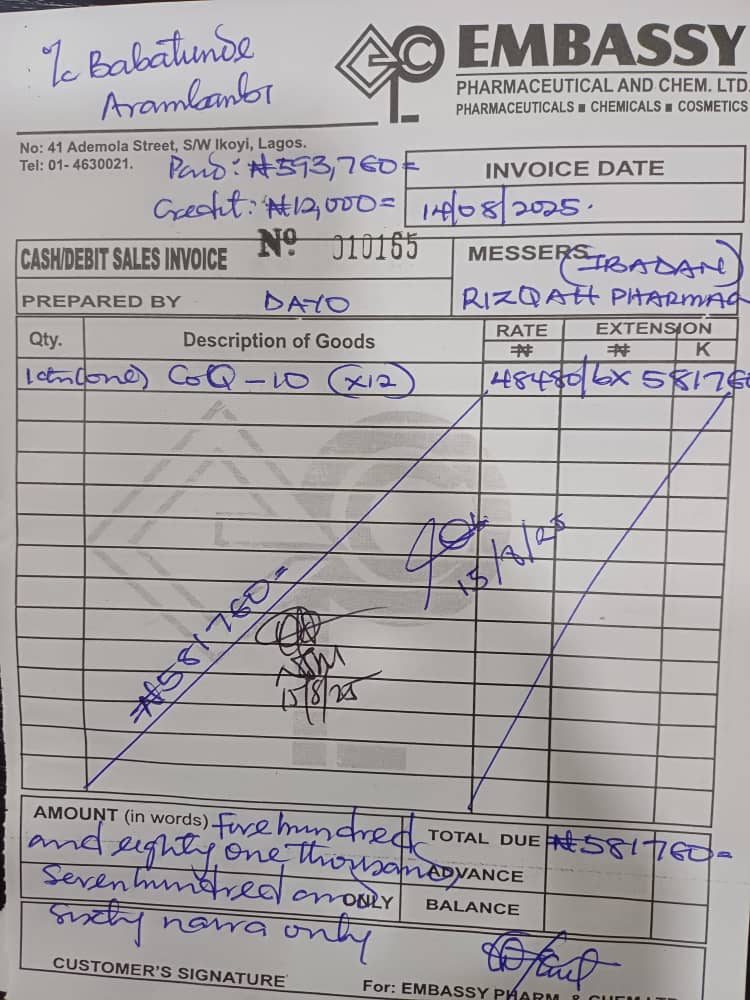 ℅ Babatunde
Arambanbi
EMBASSY
PHARMACEUTICAL AND CHEM. LTD.
PHARMACEUTICALS ■ CHEMICALS ■ COSMETICS
No: 41 Ademola Street, S/W Ikoyi, Lagos.
Tel: 01- 4630021.
Paid: ₦593,760=
Credit: ₦12,000=
INVOICE DATE
14/08/2025.
CASH/DEBIT SALES INVOICE Nº 010165
MESSERS (IBADAN)
RIZQAH PHARMAC
PREPARED BY DAYO
Qty. Description of Goods RATE ₦ EXTENSION ₦ K
1ctn(one) CoQ-10 (x12) 48480/6X 581760
15/8/25
₦581760=
15/8/25
AMOUNT (in words) Five hundred
and eighty one thousand
Seven hundred and ONLY
Sixty naira only
TOTAL DUE ₦581760=
ADVANCE
BALANCE
CUSTOMER'S SIGNATURE
For: EMBASSY PHARM. & CHEM LTD